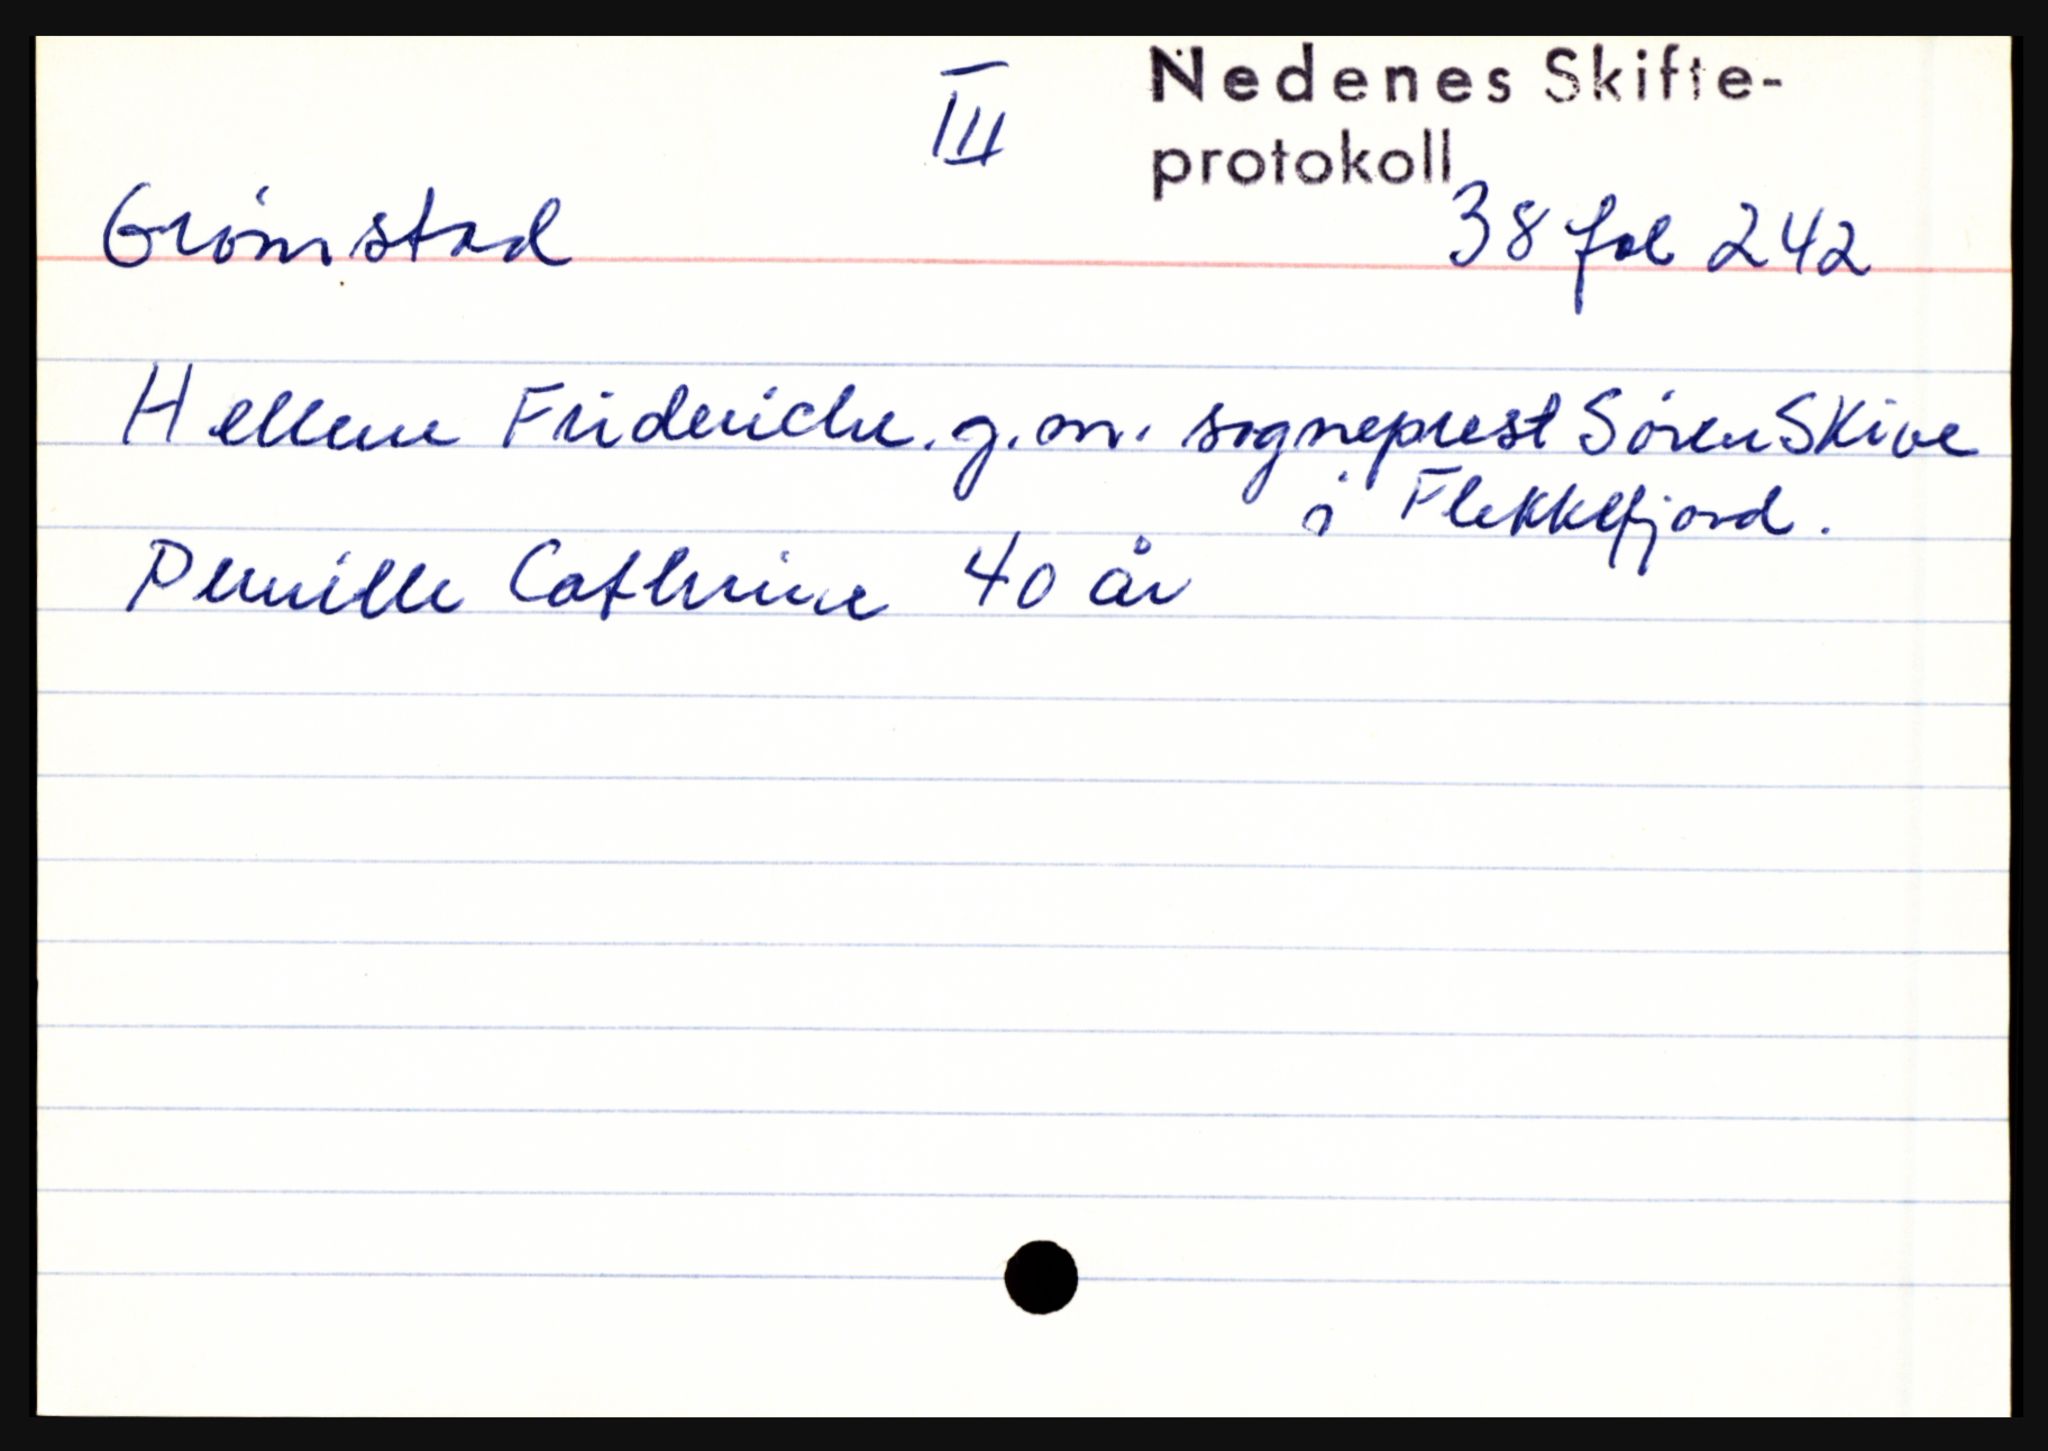 III
Nedenes Skifte-
protokoll
Grømstad 38 fol 242
Hellene Frideriche. g.m. sogneprest Søren Skive
i Flekkefjord.
Pernille Cathrine 40 år